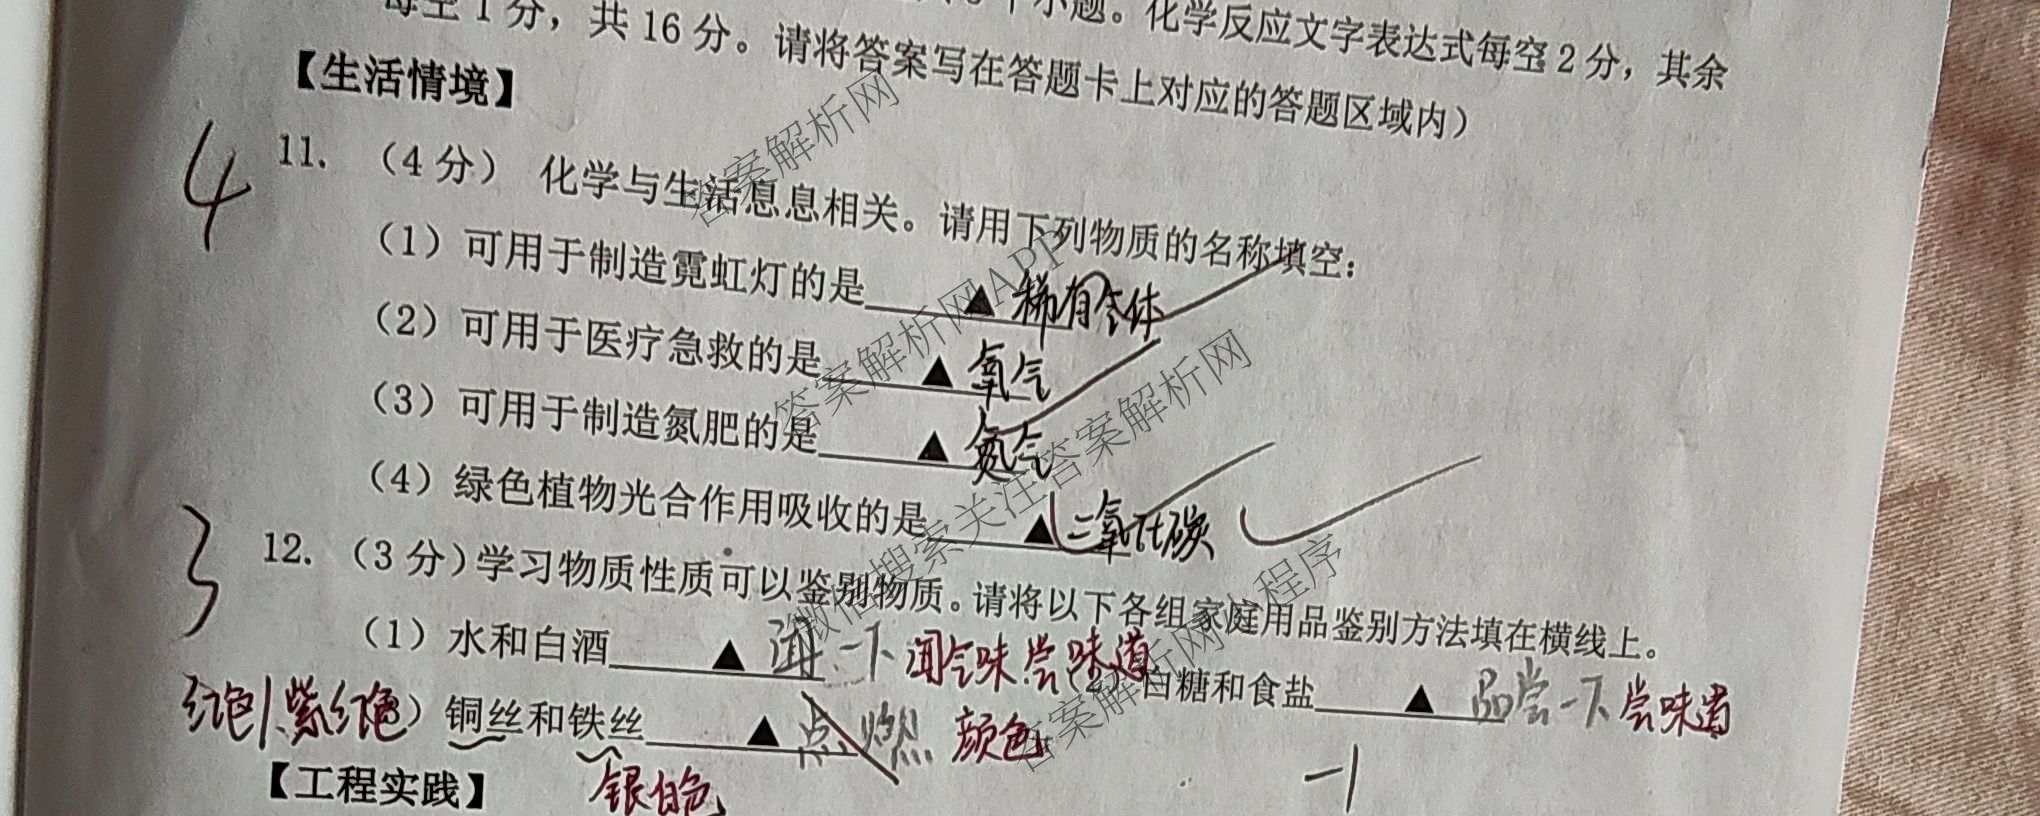 小题。化学反应文字表达式每空2分，其余
每空1分，共16分。请将答案写在答题卡上对应的答题区域内）
【生活情境】
4
11. （4分） 化学与生活息息相关。请用下列物质的名称填空：
（1）可用于制造霓虹灯的是 ▲ 稀有气体
（2）可用于医疗急救的是 ▲ 氧气
（3）可用于制造氮肥的是 ▲ 氮气
（4）绿色植物光合作用吸收的是 ▲ 二氧化碳
3
12. （3分）学习物质性质可以鉴别物质。请将以下各组家庭用品鉴别方法填在横线上。
（1）水和白酒 ▲ 闻一下 闻气味.尝味道 白糖和食盐 ▲ 品尝一下 尝味道
红色/紫红色 ）铜丝和铁丝 ▲ 点燃 颜色
-1
【工程实践】 银白色
答案解析网
答案解析网APP
微信搜索关注答案解析网
答案解析网小程序